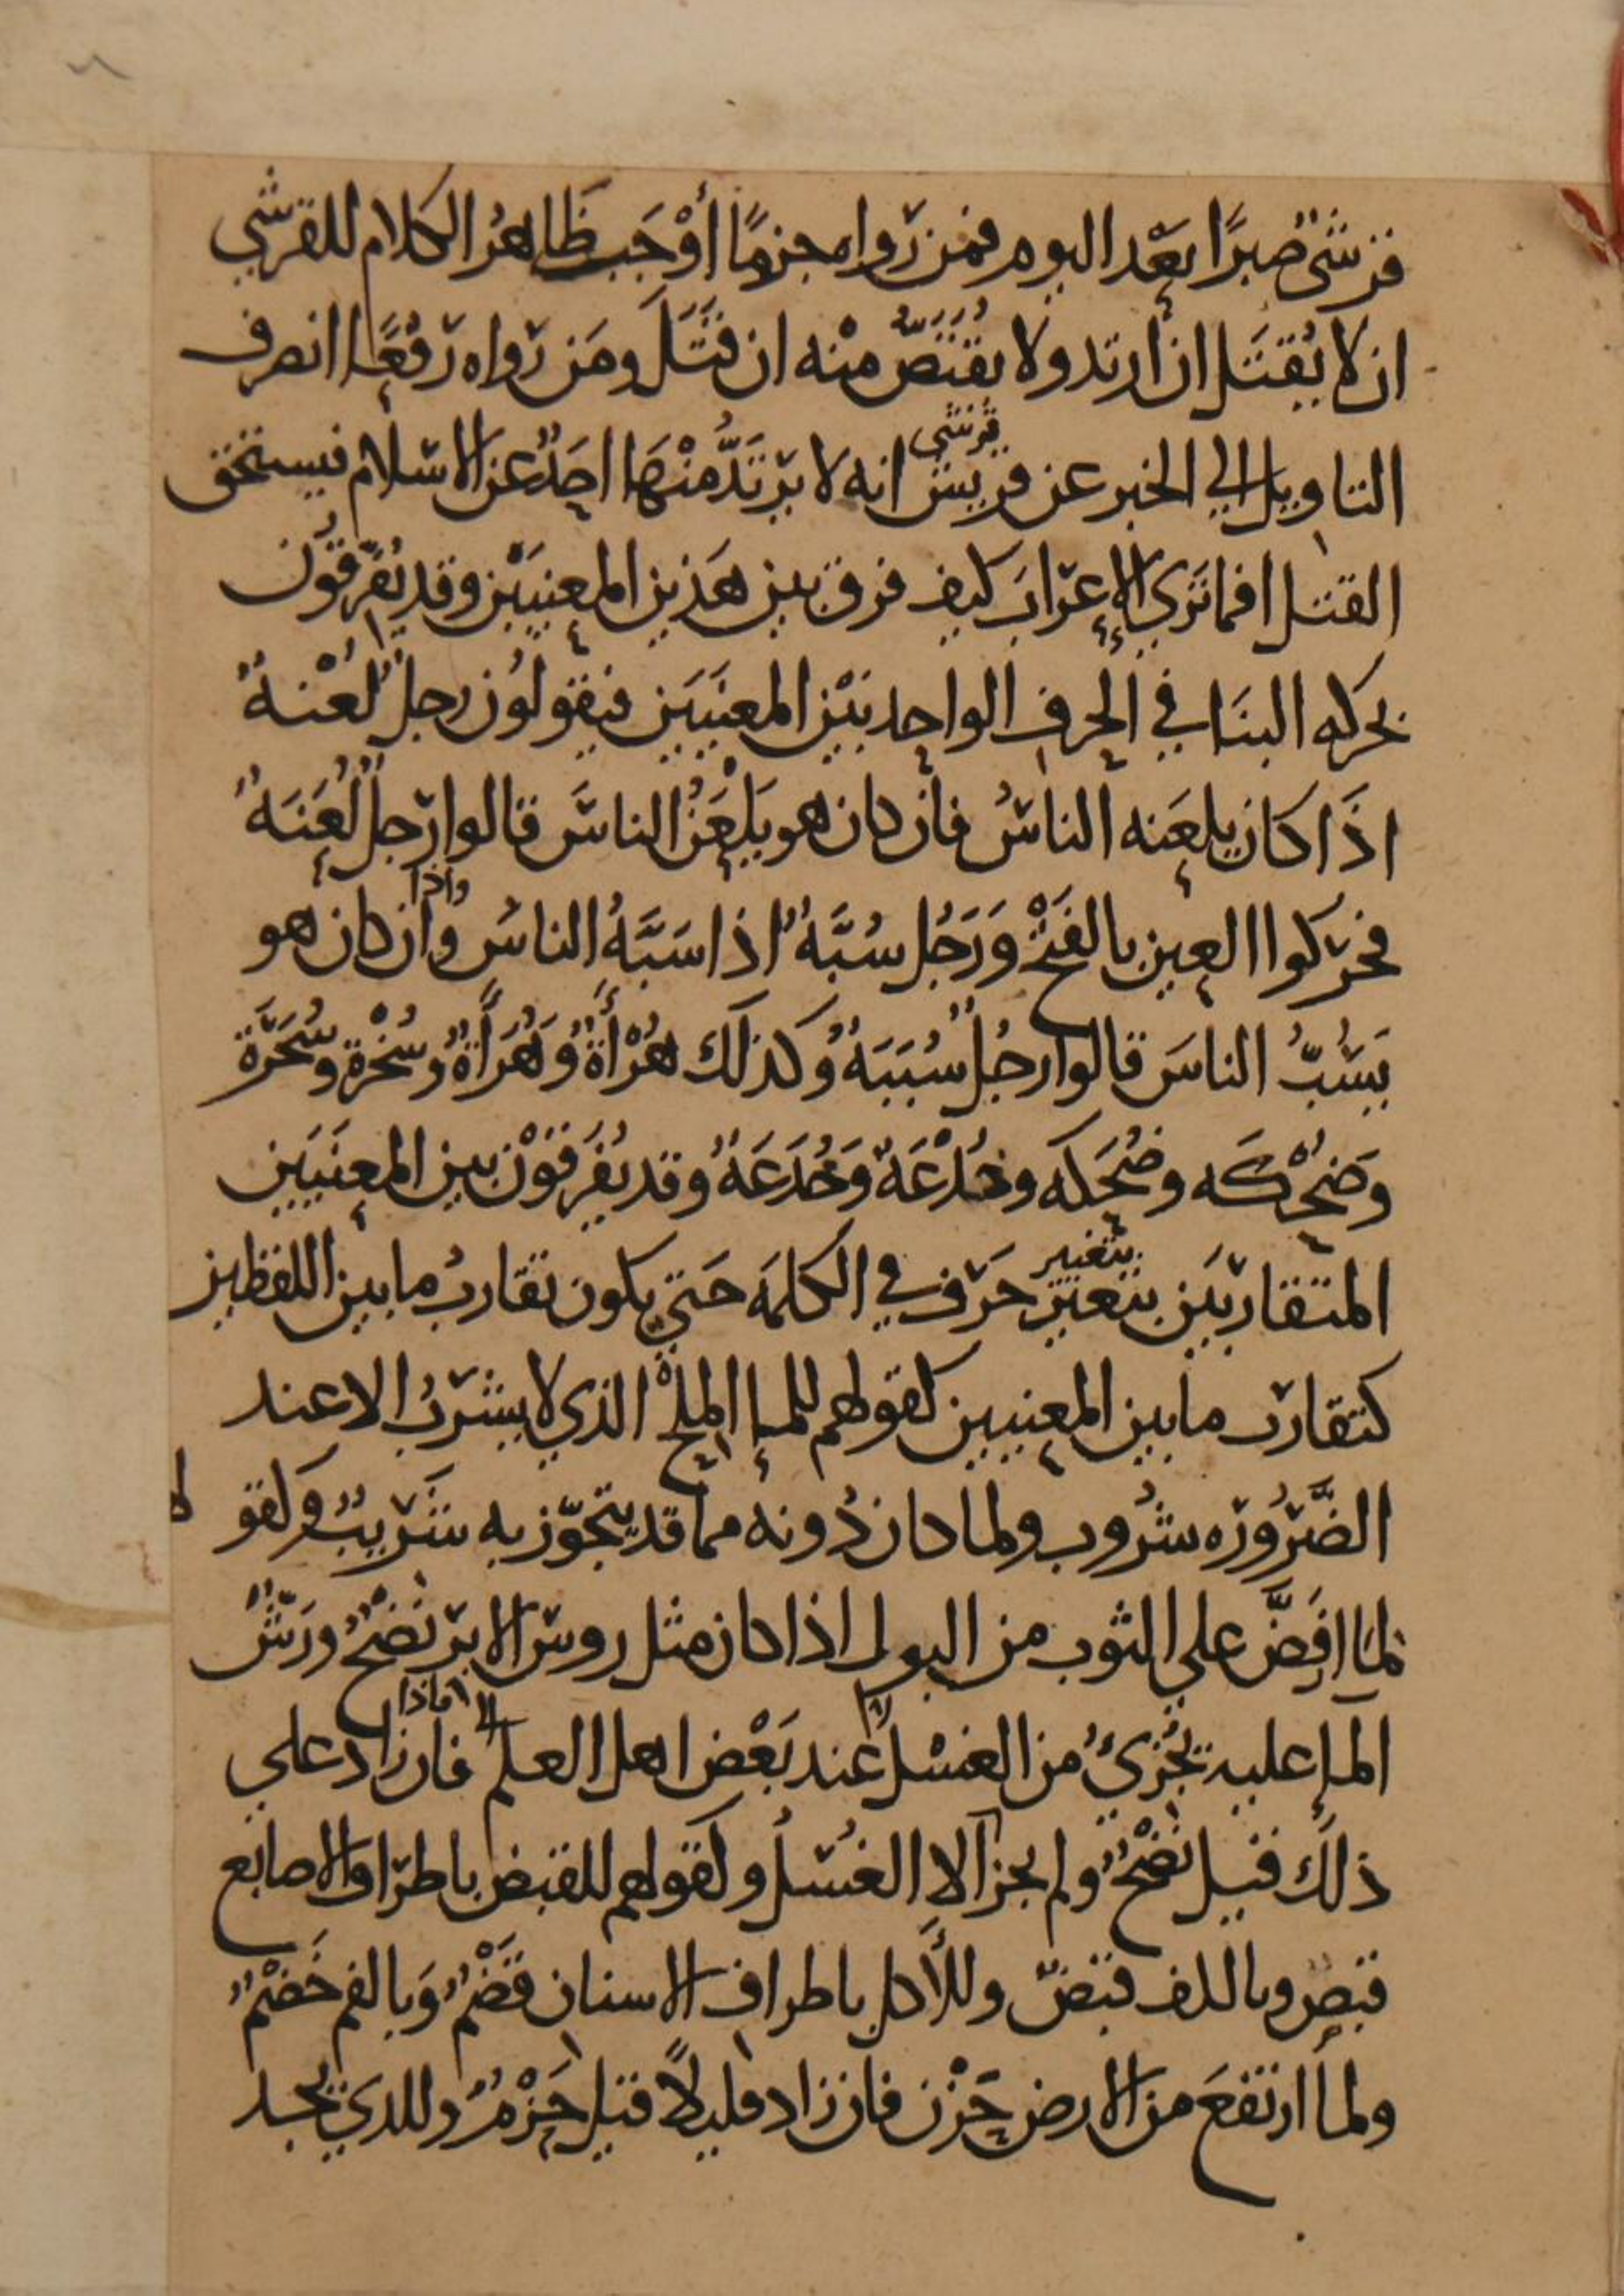 قرشي صبرًا بعْد اليوم فمن رواه جزمًا أوْجَب ظَاهرُ الكلام للقرشي
ان لا يُقتَل ان ارتد ولا يقتَصّ منْه ان قتَلَ ومَن رواه رَفْعًا انصرف
التاويل الي الخبر عن قريش قرشي انه لا يرْتَدُّ منْهَا احدٌ عن الاسلام فيستحق
القتل افما تري الإعرَابَ كيف فرق بين هذين المعنيَيْن وقد يُفَرّقوُن
بحركه البنَا في الحرف الواحد بَيْن المعنَيَين فيقولوُن رجل لُعْنةٌ
اذَا كان يلعَنه الناسُ فان كان هو يَلْعَنُ الناسَ قالوا رجلٌ لُعَنَةٌ
فحرّكوا العين بالفَتْح وَرَجُل سُبَّةٌ اذا سَبَّهُ الناسُ وان واذا كان هو
يَسُبُّ الناسَ قالوا رجُلٌ سُبَبَةٌ وكذلك هُزْأَةٌ وَهُزَأَةٌ وسُخْرة وسُخَرَة
وَضُحْكَه وضُحَكه وخُدْعَةٌ وَخُدَعَةٌ وقد يُفَرقوْن بين المعنَيَين
المتقاربَين بتغيير بتغيير حَرف في الكلمَه حَتي يكون تقاربُ ما بين اللفظين
كتقارب ما بين المعنيين كقولهم للمإ الملْح الذي لا يشرَبُ الا عند
الضَّرُورَه شرُوب ولما كان دُونه مما قد يتجوّز به شَرِيبٌ وَكقو لهم
لمَا ارفَضَّ علي الثوب من البول اذا كان مثل روس الابر نَضْحٌ ورَشّ
المإ عليه يُجْزئُ من الغسْل عند بَعْض اهل العلم فان فاذا زاد علي
ذلك قيل نضْخٌ ولم يجز الا الغُسْلُ وكقولهم للقبض باطرَاف الاصابع
قبص وبالكف قبَضٌ وللأكل باطراف الاسنان قَضْمٌ وَبالفم خَضْمٌ
ولما ارتفعَ من الارض حَزْن فان زاد قليلًا قيل حَزْمٌ وللذي يجد